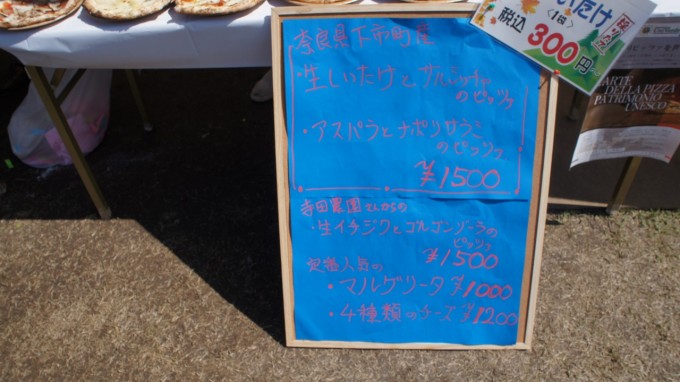 奈良県下市町産
・生しいたけとサルシッチャ
のピッツァ
・アスパラとナポリサラミ
のピッツァ
¥1500
寺田農園さんちの
・生イチジクとゴルゴンゾーラの
ピッツァ
¥1500
定番人気の
・マルゲリータ ¥1000
・4種類のチーズ ¥1200
いたけ
〈1袋〉
税込 300円
ARTE
DELLA PIZZA
PATRIMONIO
UNESCO